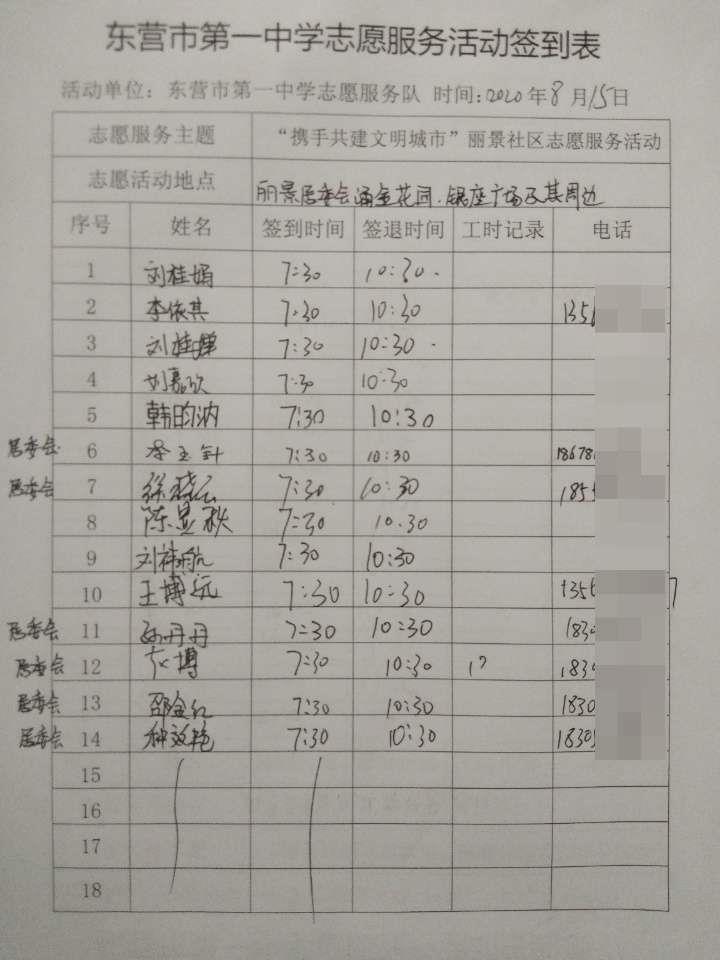 东营市第一中学志愿服务活动签到表
活动单位：东营市第一中学志愿服务队 时间：2020年8月15日
志愿服务主题 “携手共建文明城市”丽景社区志愿服务活动
志愿活动地点 丽景居委会 花园、银座广场及其周边
序号 姓名 签到时间 签退时间 工时记录 电话
1 刘桂娟 7:30 10:30
2 李依其 7:30 10:30 135
3 刘桂 7:30 10:30
4 刘嘉欣 7:30 10:30
5 韩昀汭 7:30 10:30
居委会 6 7:30 10:30 18678
居委会 7 徐晓云 7:30 10:30 185
8 陈显秋 7:30 10:30
9 刘祎航 7:30 10:30
10 王博远 7:30 10:30 135 7
居委会 11 孙丹丹 7:30 10:30 183
居委会 12 博 7:30 10:30 183
居委会 13 邵金红 7:30 10:30 1830
居委会 14 种效艳 7:30 10:30 1830
15
16
17
18